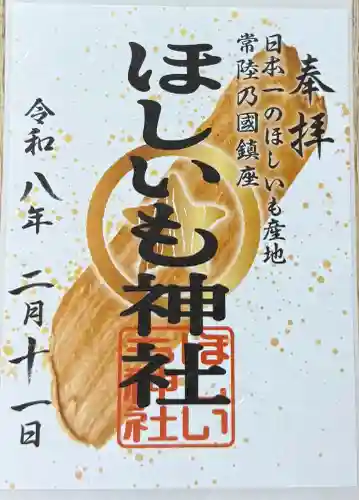 奉拝
日本一のほしいも産地
常陸乃國鎮座
ほしいも神社
令和八年 二月十一日
ほしい
も神社